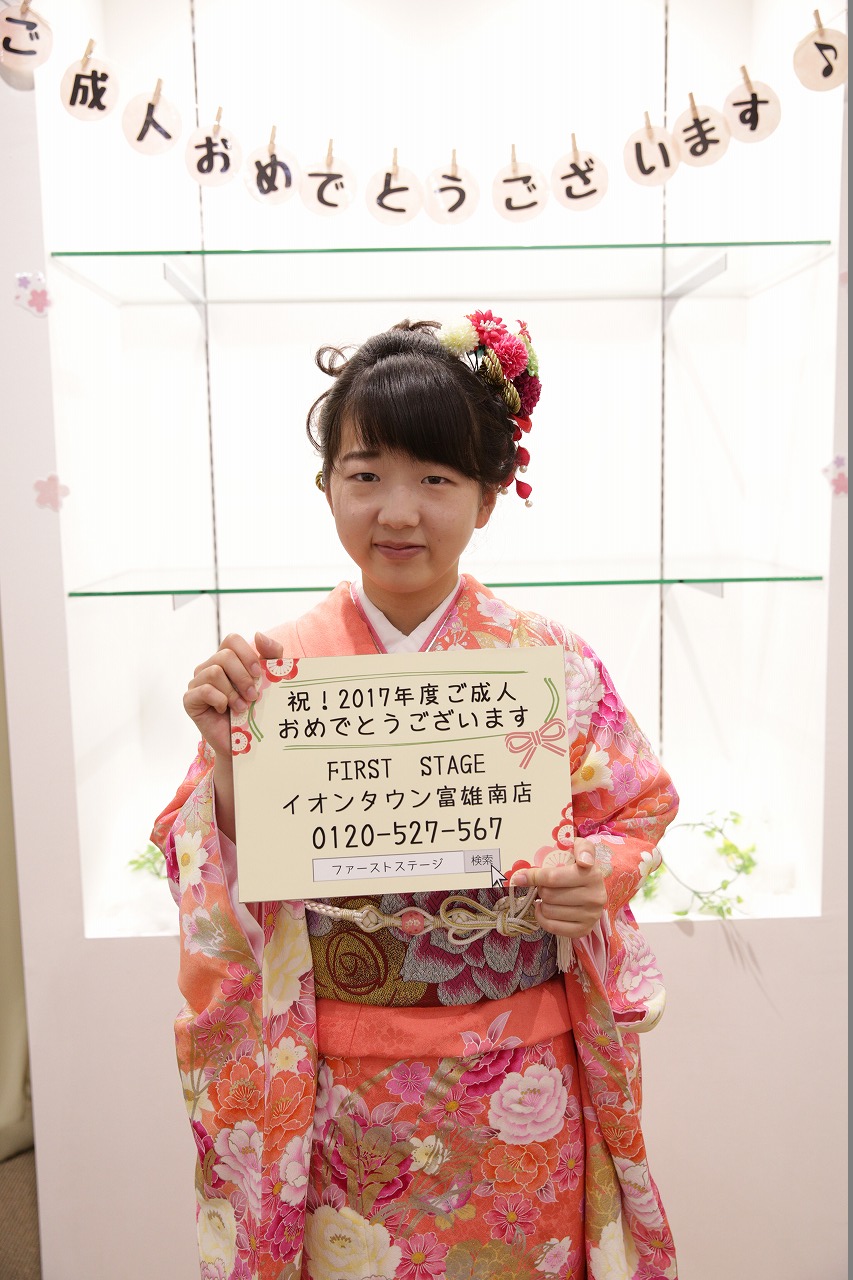 ご成人おめでとうございます♪
祝！2017年度ご成人
おめでとうございます
FIRST STAGE
イオンタウン富雄南店
0120-527-567
ファーストステージ 検索